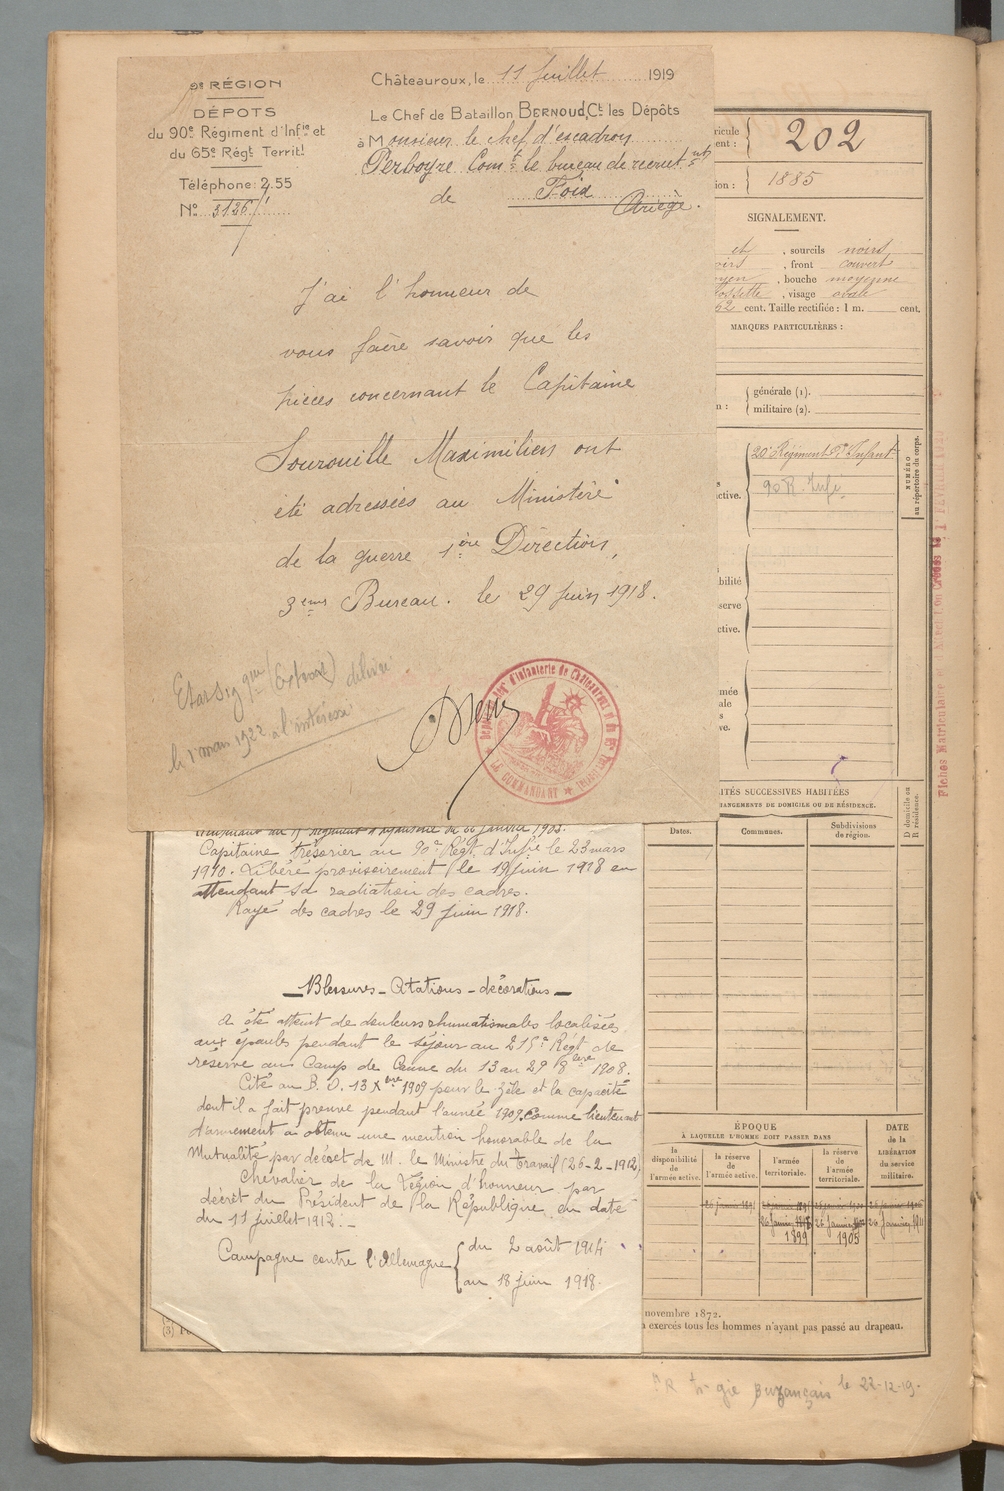 9e RÉGION
DÉPOTS
du 90e Régiment d'Infie et
du 65e Régt Territl
Téléphone: 2.55
No 3126
Châteauroux, le 11 Juillet 1919
Le Chef de Bataillon BERNOUD, Ct les Dépôts
à Monsieur le chef d'escadron
Perboyre Comt le bureau de recrutnt
de Foix
Ariège.
J'ai l'honneur de
vous faire savoir que les
pièces concernant le Capitaine
Sourouille Maximilien ont
été adressées au Ministère
de la guerre 1ère Direction,
3eme Bureau. le 29 juin 1918.
Etat sig qm (Extrait) délivré
le 1 mars 1922 à l'intéressé
LE COMMANDANT
202
1885
SIGNALEMENT.
et , sourcils noirs
, front couvert
, bouche moyenne
fossette , visage ovale
62 cent. Taille rectifiée : 1 m. cent.
MARQUES PARTICULIÈRES :
générale (1).
militaire (2).
20e Régiment d'Infant
90 R. Infe
NUMÉRO
au répertoire du corps.
ctive.
bilité
serve
ctive.
ITÉS SUCCESSIVES HABITÉES
HANGEMENTS DE DOMICILE OU DE RÉSIDENCE.
D domicile ou
R résidence.
Dates.
Communes.
Subdivisions
de région.
Capitaine trésorier au 90e Régt d'Infie le 23 mars
1910. Libéré provisoirement le 19 juin 1918 en
attendant sa radiation des cadres.
Rayé des cadres le 29 juin 1918.
Blessures - Citations - décorations
A été atteint de douleurs rhumatismales localisées
aux épaules pendant le séjour au 215e Régt de
réserve au Camp de Caune du 13 au 29 8bre 1908.
Cité au B.O. 13 Xbre 1909 pour le zèle et la capacité
dont il a fait preuve pendant l'année 1909 comme lieutenant
d'armement a obtenu une mention honorable de la
Mutualité par décret de M. le Ministre du Travail (26-2-1912)
Chevalier de la Légion d'honneur par
décret du Président de la République en date
du 11 juillet 1912.-
Campagne contre l'Allemagne { du 2 août 1914
au 18 juin 1918.
ÉPOQUE
À LAQUELLE L'HOMME DOIT PASSER DANS
la
disponibilité
de
l'armée active.
la réserve
de
l'armée active.
l'armée
territoriale.
la réserve
de
l'armée
territoriale.
DATE
de la
LIBÉRATION
du service
militaire.
1899
1905
novembre 1872.
exercés tous les hommes n'ayant pas passé au drapeau.
(3)
gie Buzançais le 22-12-19-